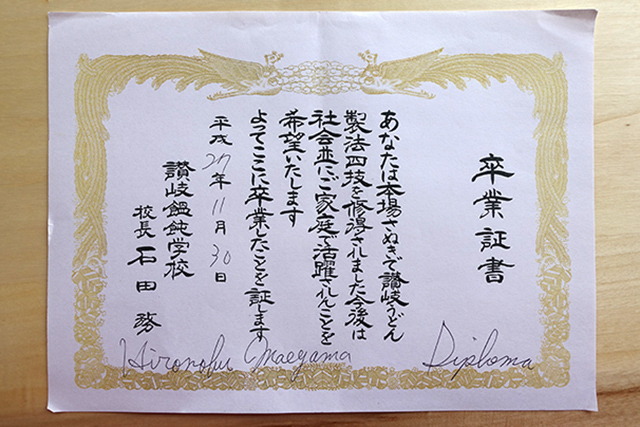 卒業証書
あなたは本場さぬきで讃岐うどん
製法四技を修得されました今後は
社会並にご家庭で活躍されんことを
希望いたします
よってここに卒業したことを証します
平成27年11月30日
讃岐饂飩学校
校長 石田 務
Hironobu Maegama
Diploma